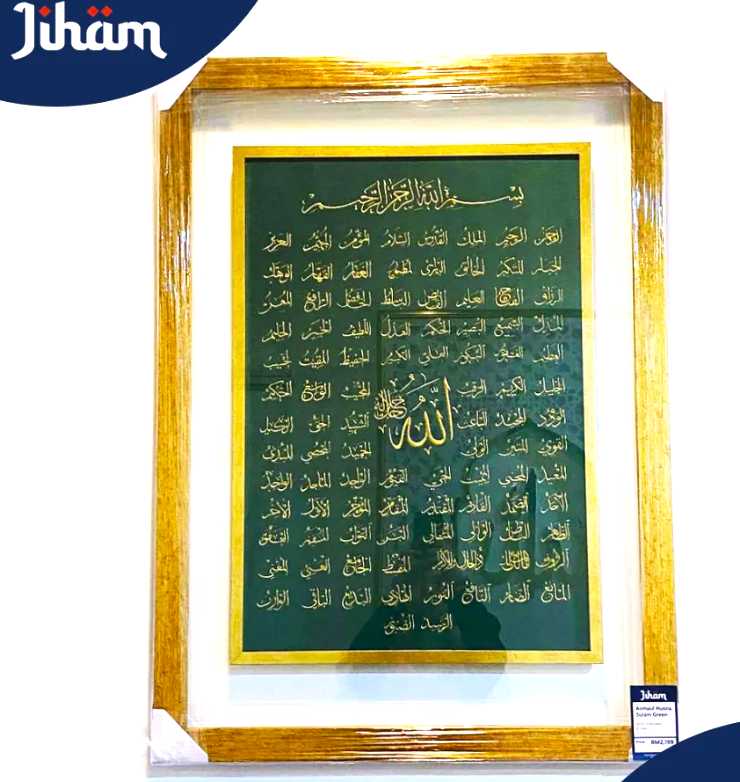 Jihäm
بسم الله الرحمن الرحيم
الرحمن الرحيم الملك القدوس السلام المؤمن المهيمن العزيز
الجبار المتكبر الخالق البارئ المصور الغفار القهار الوهاب
الرزاق الفتاح العليم القابض الباسط الخافض الرافع المعز
المذل السميع البصير الحكم العدل اللطيف الخبير الحليم
العظيم الغفور الشكور العلي الكبير الحفيظ المقيت الحسيب
الجليل الكريم الرقيب المجيب الواسع الحكيم
الله جل جلاله
الودود المجيد الباعث الشهيد الحق الوكيل
القوي المتين الولي الحميد المحصي المبدئ
المعيد المحيي المميت الحي القيوم الواجد الماجد الواحد
الأحد الصمد القادر المقتدر المقدم المؤخر الأول الآخر
الظاهر الباطن الوالي المتعالي البر التواب المنتقم العفو
الرءوف مالك الملك ذو الجلال والإكرام المقسط الجامع الغني المغني
المانع الضار النافع النور الهادي البديع الباقي الوارث
الرشيد الصبور
Jihäm
Asmaul Husna
Sulam Green
RM2,199